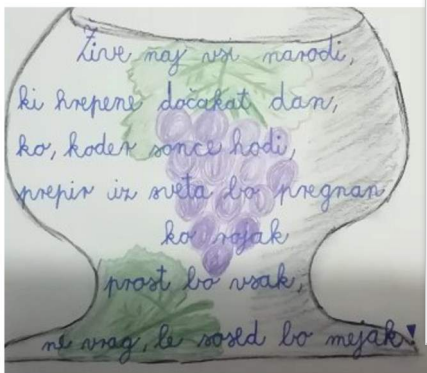 Žive naj vsi narodi,
ki hrepene dočakat dan,
ko, koder sonce hodi,
prepir iz sveta bo pregnan
ko rojak
prost bo vsak,
ne vrag, le sosed bo mejak!